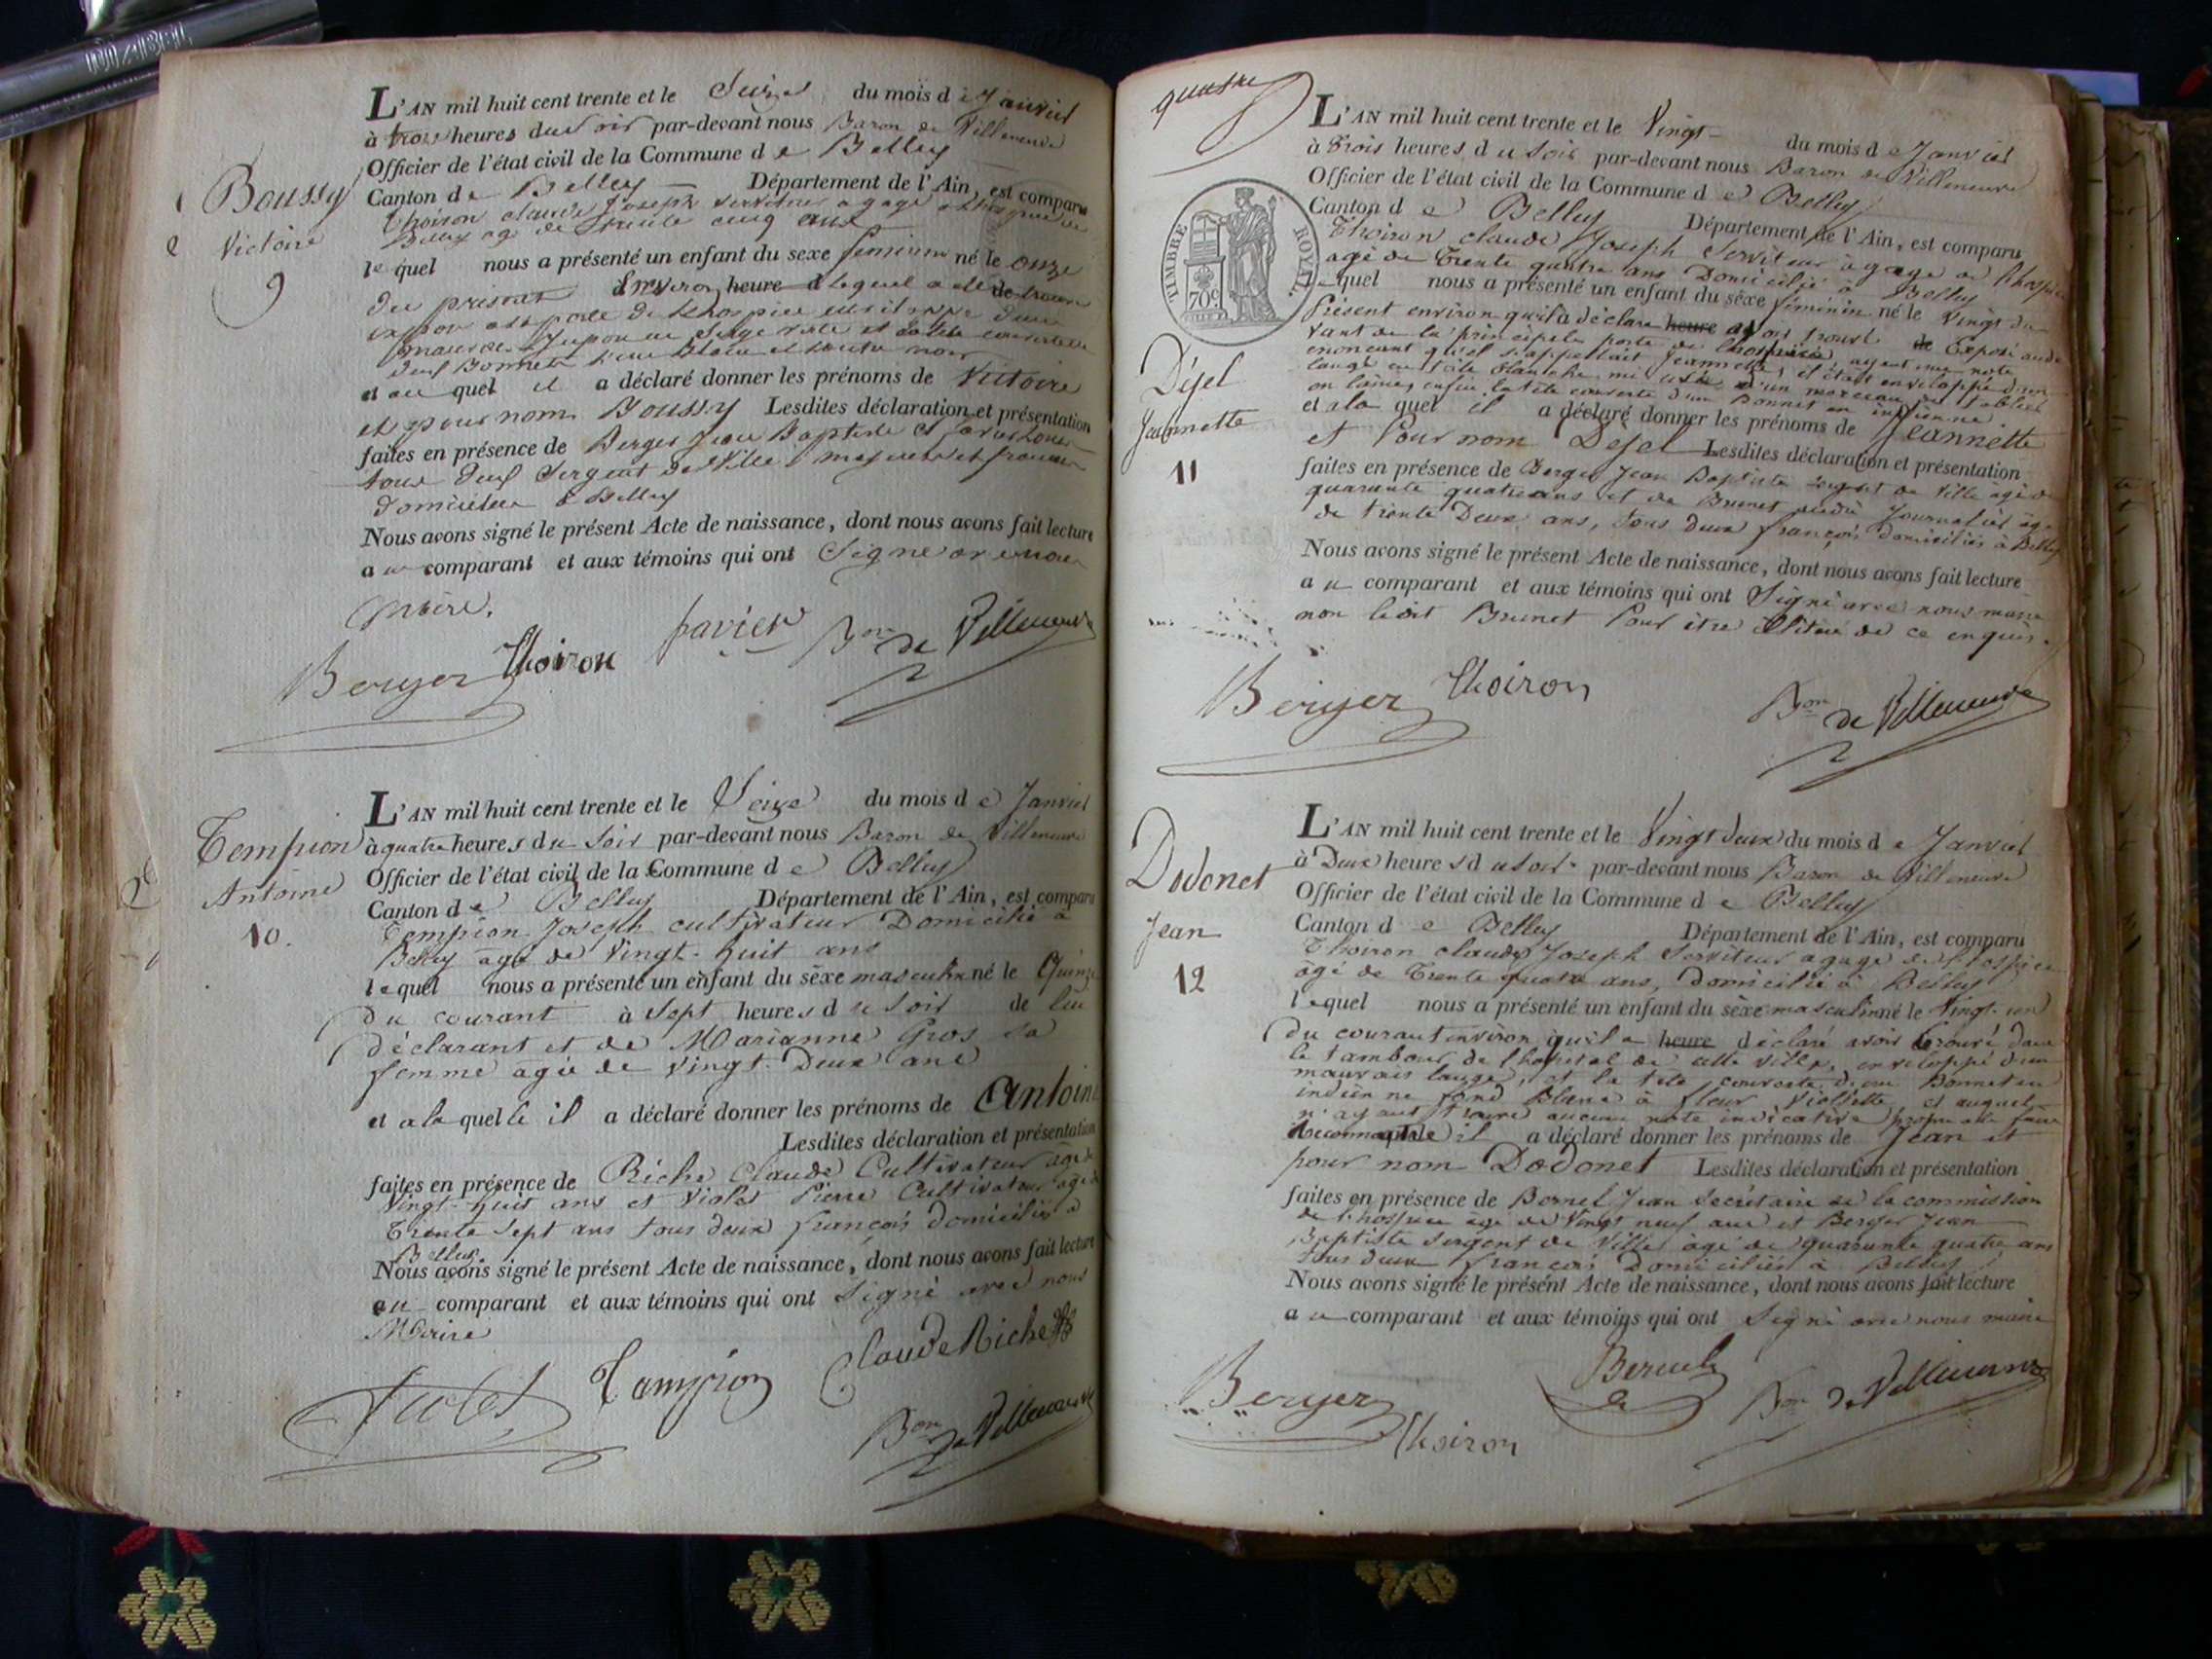 Boussy
Victoire
9
L'AN mil huit cent trente et le Seize du mois de Janvier
à trois heures du soir par-devant nous Baron de Villeneuve
Officier de l'état civil de la Commune de Belley
Canton de Belley Département de l'Ain, est comparu
Thoiron claude Joseph serviteur a gage a lhospice de
Belley age de trente cinq ans
lequel nous a présenté un enfant du sexe feminin né le onze
du present environ heure lequel a été
porte de lhospice enveloppe dun
mauvais Jupon
deux Bonnets l'un Blanc et lautre noir
et au quel il a déclaré donner les prénoms de Victoire
et pour nom Boussy Lesdites déclaration et présentation
faites en présence de Berger Jean Baptiste et
tous deux Sergent de Ville
domicilies a Belley
Nous avons signé le présent Acte de naissance, dont nous avons fait lecture
au comparant et aux témoins qui ont Signé avec nous
Maire.
Berger Thoiron favier Bon de Villeneuve
Tempion
Antoine
10.
L'AN mil huit cent trente et le Seize du mois de Janvier
à quatre heures du Soir par-devant nous Baron de Villeneuve
Officier de l'état civil de la Commune de Belley
Canton de Belley Département de l'Ain, est comparu
Tempion Joseph cultivateur Domicilié à
Belley âgé de Vingt-huit ans
lequel nous a présenté un enfant du sèxe masculin né le Quinze
du courant à Sept heures du Soir de lui
déclarant et de Marianne Gros sa
femme agée de Vingt-Deux ans
et a la quelle il a déclaré donner les prénoms de Antoine
Lesdites déclaration et présentation
faites en présence de Riche Claude Cultivateur agé de
Vingt-huit ans et Violet Pierre Cultivateur agé de
Trente Sept ans tous deux françois domiciliés a
Belley.
Nous avons signé le présent Acte de naissance, dont nous avons fait lecture
au comparant et aux témoins qui ont Signé avec nous
Maire
Violet Tampion Claude Riche
Bon de Villeneuve
quatre
TIMBRE ROYAL
70c
Déjel
Jeannette
11
L'AN mil huit cent trente et le Vingt du mois de Janvier
à trois heures du Soir par-devant nous Baron de Villeneuve
Officier de l'état civil de la Commune de Belley
Canton de Belley Département de l'Ain, est comparu
Thoiron claude Joseph Serviteur à gage a l'hospice
agé de Trente quatre ans Domicilié à Belley
lequel nous a présenté un enfant du sèxe féminin né le Vingt du
Présent environ qu'il à déclaré heure avoir trouvé de Exposé au de
vant de la principale porte de lhospice, ayant une note
enoncant qu'el s'appellait Jeannette, et était enveloppé d'un
lange en toile blanche mi usée d'un morceau de tablier
en laine, enfin la tête couverte d'un Bonnet en indienne.
et a la quel il a déclaré donner les prénoms de Jeannette
et Pour nom Dejel Lesdites déclaration et présentation
faites en présence de Berger Jean Baptiste sergent de Ville âgé de
quarante quatre ans et de Brunet Journalier âgé
de trente Deux ans, tous deux françois domiciliés à Belley
Nous avons signé le présent Acte de naissance, dont nous avons fait lecture
au comparant et aux témoins qui ont Signé avec nous maire
non ledit Brunet Pour être illitéré de ce enquis.
Berger Thoiron Bon de Villeneuve
Dodonet
Jean
12
L'AN mil huit cent trente et le Vingt deux du mois de Janvier
à Deux heures du soir par-devant nous Baron de Villeneuve
Officier de l'état civil de la Commune de Belley
Canton de Belley Département de l'Ain, est comparu
Thoiron claude Joseph Serviteur a gage de l'hospice
âgé de Trente quatre ans, domicilié à Belley
lequel nous a présenté un enfant du sèxe masculin né le Vingt-un
du courant environ qu'il a heure déclaré avoir trouvé dans
le tambour de l'hopital de cette Ville, enveloppé d'un
mauvais lange, et la tête couverte d'un Bonnet en
indienne fond blanc à fleur Viollette et auquel
n'ayant trouvé aucune note indicative propre a le faire
reconnaitre il a déclaré donner les prénoms de Jean et
pour nom Dodonet Lesdites déclaration et présentation
faites en présence de Bernel Jean Secrétaire de la commission
de l'hospice agé de Vingt neuf ans et Berger Jean
Baptiste Sergent de Ville âgé de quarante quatre ans
tous deux françois Domiciliés à Belley
Nous avons signé le présent Acte de naissance, dont nous avons fait lecture
au comparant et aux témoins qui ont Signé avec nous maire
Berger Thoiron Bernel Bon de Villeneuve